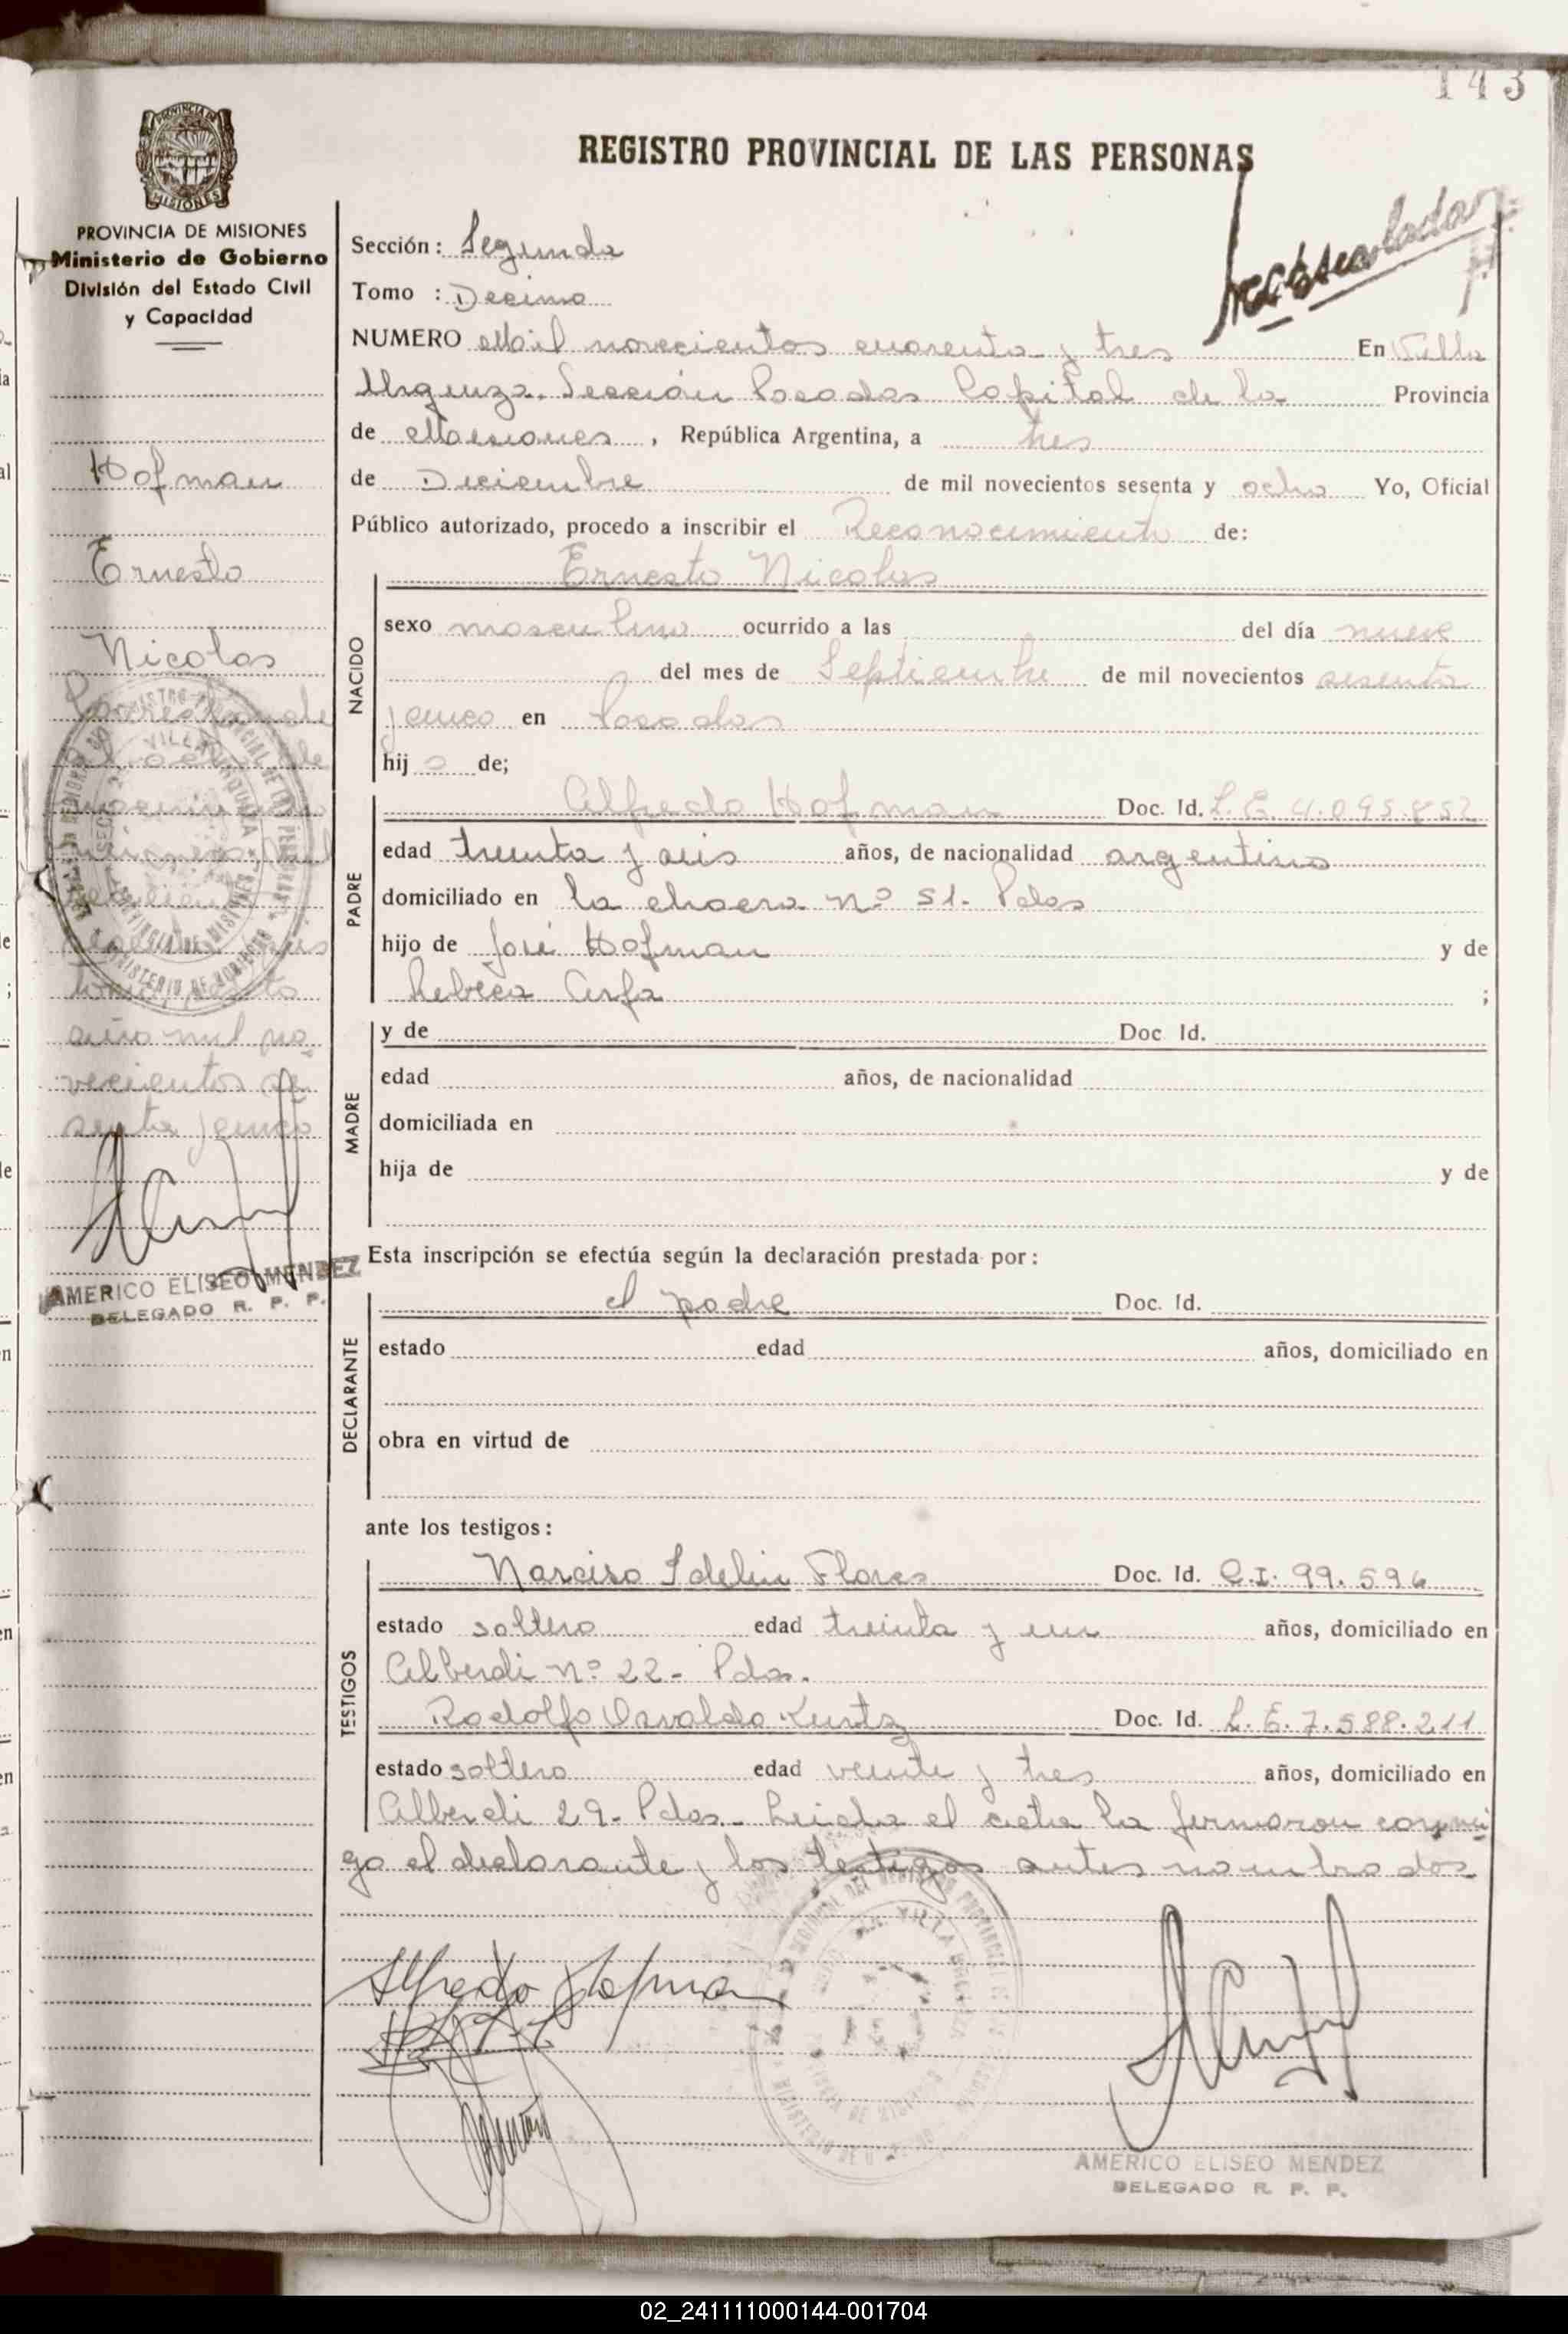 143
REGISTRO PROVINCIAL DE LAS PERSONAS
PROVINCIA DE MISIONES
Ministerio de Gobierno
División del Estado Civil
y Capacidad
Hofman
Ernesto
Nicolas
año mil no-
vecientos se-
senta y cinco
AMERICO ELISEO MENDEZ
DELEGADO R. P. P.
Sección: Segunda
Tomo : Decimo
NUMERO Mil novecientos cuarenta y tres En Villa
Urquiza. Sección Posadas Capital de la Provincia
de Misiones, República Argentina, a tres
de Diciembre de mil novecientos sesenta y ocho Yo, Oficial
Público autorizado, procedo a inscribir el Reconocimiento de:
NACIDO
Ernesto Nicolas
sexo masculino ocurrido a las del día nueve
del mes de Septiembre de mil novecientos sesenta
y cinco en Posadas
hij o de;
PADRE
Alfredo Hofman Doc. Id. L.E. 4.095.852
edad treinta y seis años, de nacionalidad argentino
domiciliado en la chacra nº 51. Pdas
hijo de José Hofman y de
Rebeca Arfa ;
MADRE
y de Doc. Id.
edad años, de nacionalidad
domiciliada en
hija de y de
Esta inscripción se efectúa según la declaración prestada por:
DECLARANTE
el padre Doc. Id.
estado edad años, domiciliado en
obra en virtud de
ante los testigos:
TESTIGOS
Narciso Idelin Flores Doc. Id. C.I. 99.596
estado soltero edad treinta y un años, domiciliado en
Alberdi nº 22- Pdas.
Rodolfo Osvaldo Kurtz Doc. Id. L.E. 7.588.211
estado soltero edad veinte y tres años, domiciliado en
Alberdi 29- Pdas- Leida el acta la firmaron conmi
go el declarante y los testigos antes nombrados
Alfredo Hofman
AMERICO ELISEO MENDEZ
DELEGADO R. P. P.
02_241111000144-001704